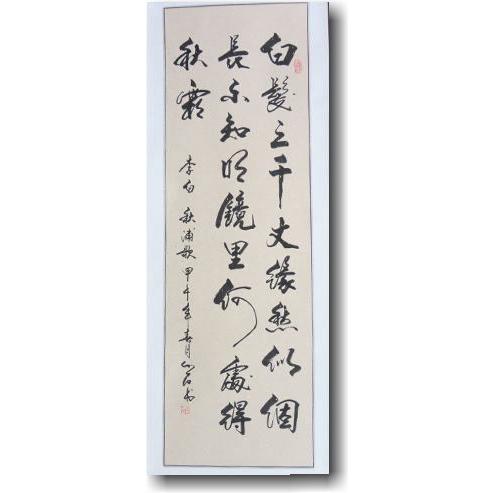 白髮三千丈缘愁似個
長不知明鏡里何處得
秋霜
李白 秋浦歌 甲午年春月 书